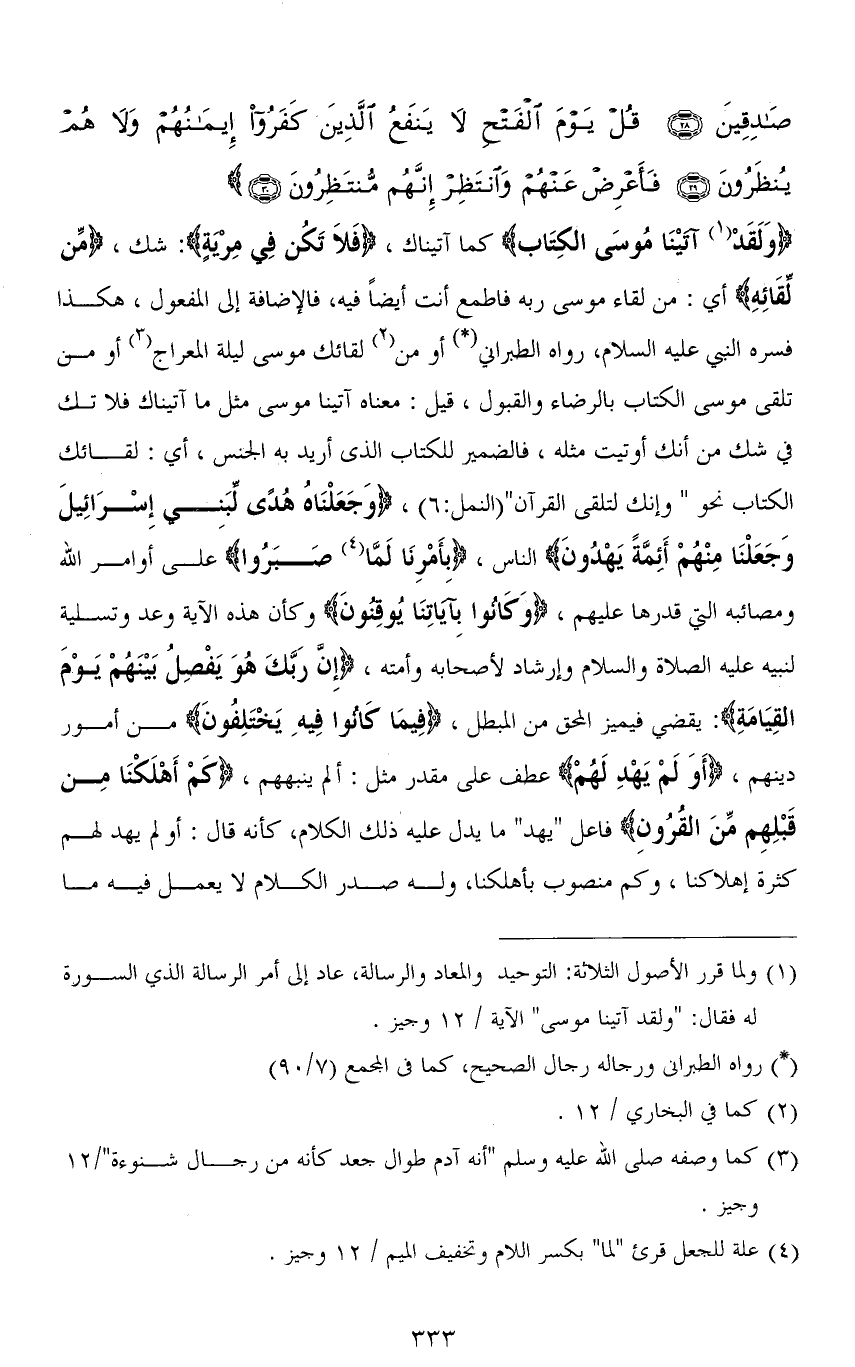 صَـٰدِقِينَ ﴿٢٨﴾ قُلْ يَوْمَ ٱلْفَتْحِ لَا يَنفَعُ ٱلَّذِينَ كَفَرُوٓا۟ إِيمَـٰنُهُمْ وَلَا هُمْ
يُنظَرُونَ ﴿٢٩﴾ فَأَعْرِضْ عَنْهُمْ وَٱنتَظِرْ إِنَّهُم مُّنتَظِرُونَ ﴿٣٠﴾ ﴾
﴿وَلَقَدْ(١) آتَيْنَا مُوسَى الكِتَاب﴾ كما آتيناك ، ﴿فَلاَ تَكُن فِي مِرْيَةٍ﴾: شك ، ﴿مِّن
لِّقَائِهِ﴾ أي : من لقاء موسى ربه فاطمع أنت أيضاً فيه، فالإضافة إلى المفعول ، هكذا
فسره النبي عليه السلام، رواه الطبراني(*) أو من(٢) لقائك موسى ليلة المعراج(٣) أو من
تلقى موسى الكتاب بالرضاء والقبول ، قيل : معناه آتينا موسى مثل ما آتيناك فلا تك
في شك من أنك أوتيت مثله ، فالضمير للكتاب الذى أريد به الجنس ، أي : لقائك
الكتاب نحو " وإنك لتلقى القرآن"(النمل:٦) ، ﴿وَجَعَلْنَاهُ هُدًى لِّبَنِي إِسْرَائِيلَ
وَجَعَلْنَا مِنْهُمْ أَئِمَّةً يَهْدُونَ﴾ الناس ، ﴿بِأَمْرِنَا لَمَّا(٤) صَبَرُوا﴾ على أوامر الله
ومصائبه التي قدرها عليهم ، ﴿وَكَانُوا بِآيَاتِنَا يُوقِنُونَ﴾ وكأن هذه الآية وعد وتسلية
لنبيه عليه الصلاة والسلام وإرشاد لأصحابه وأمته ، ﴿إِنَّ رَبَّكَ هُوَ يَفْصِلُ بَيْنَهُمْ يَوْمَ
القِيَامَةِ﴾: يقضي فيميز المحق من المبطل ، ﴿فِيمَا كَانُوا فِيهِ يَخْتَلِفُونَ﴾ من أمور
دينهم ، ﴿أَوَ لَمْ يَهْدِ لَهُمْ﴾ عطف على مقدر مثل : ألم ينبههم ، ﴿كَمْ أَهْلَكْنَا مِن
قَبْلِهِم مِّنَ القُرُونِ﴾ فاعل "يهد" ما يدل عليه ذلك الكلام، كأنه قال : أو لم يهد لهم
كثرة إهلاكنا ، وكم منصوب بأهلكنا، وله صدر الكلام لا يعمل فيه ما
(١) ولما قرر الأصول الثلاثة: التوحيد والمعاد والرسالة، عاد إلى أمر الرسالة الذي السورة
له فقال: "ولقد آتينا موسى" الآية / ١٢ وجيز .
(*) رواه الطبرانى ورجاله رجال الصحيح، كما فى المجمع (٩٠/٧)
(٢) كما في البخاري / ١٢ .
(٣) كما وصفه صلى الله عليه وسلم "أنه آدم طوال جعد كأنه من رجال شنوءة"/١٢
وجيز .
(٤) علة للجعل قرئ "لما" بكسر اللام وتخفيف الميم / ١٢ وجيز .
٣٣٣